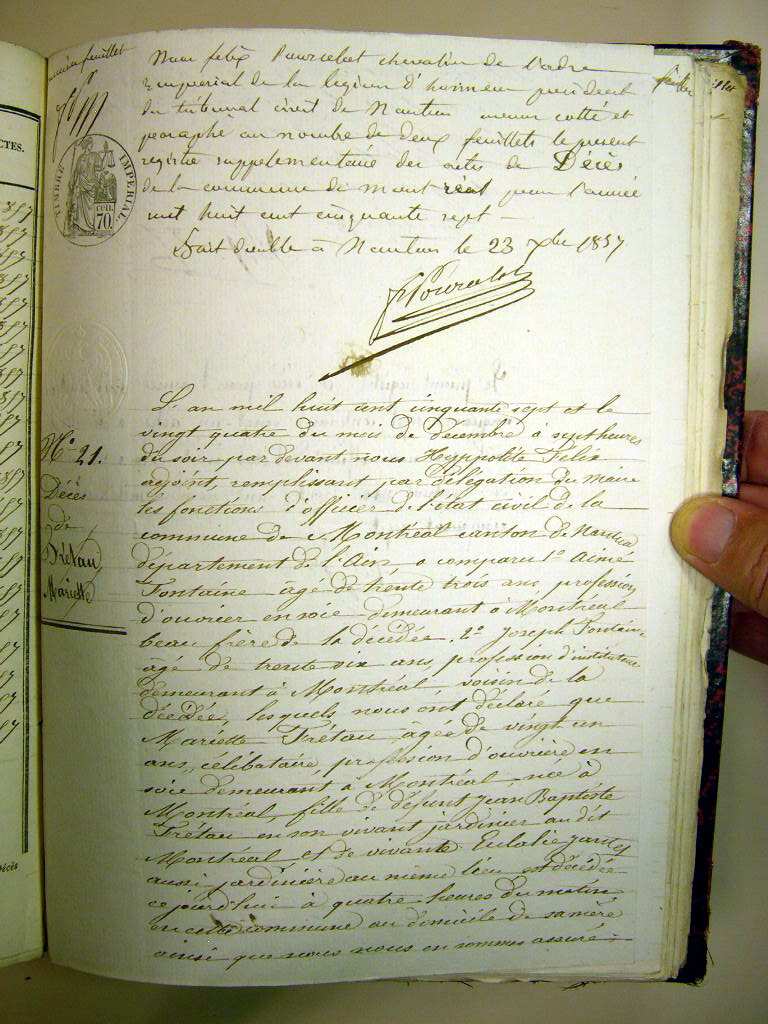 CTES.
feuillet
TIMBRE IMPÉRIAL
cen. 70.
Nous felix Pourcelot chevalier de l'ordre
Imperial de la legion d'honneur president
du tribunal civil de Nantua avons cotté et
paraphé au nombre de deux feuillets le present
registre supplementaire des actes de Décès
de la commune de mont réal pour l'année
mil huit cent cinquante sept —
fait double à Nantua le 23 xbre 1857
FPourcelot
N° 21.
Décès
de
Trétau
Mariette
L'an mil huit cent cinquante sept et le
vingt quatre du mois de Décembre à sept heures
du soir par devant nous Hyppolite Felix
adjoint remplissant par délégation du Maire
les fonctions d'officier de l'état civil de la
commune de Montréal canton de Nantua
département de l'Ain, a comparu 1° Aimé
Fontaine âgé de trente trois ans, profession
d'ouvrier en soie demeurant à Montréal
beau frère de la décédée. 2° Joseph Fontaine
âgé de trente six ans, profession d'instituteur
demeurant à Montréal voisin de la
décédée, lesquels nous ont déclaré que
Mariette Trétau âgée de vingt un
ans, célibataire, profession d'ouvrière en
soie demeurant à Montréal née à
Montréal, fille de défunt Jean Baptiste
Trétau en son vivant jardinier au dit
Montréal et de vivante Eulalie
aussi jardinière au même lieu est décédée
ce jourd'hui à quatre heures du matin
en cette commune au domicile de sa mère
ainsi que nous nous en sommes assuré